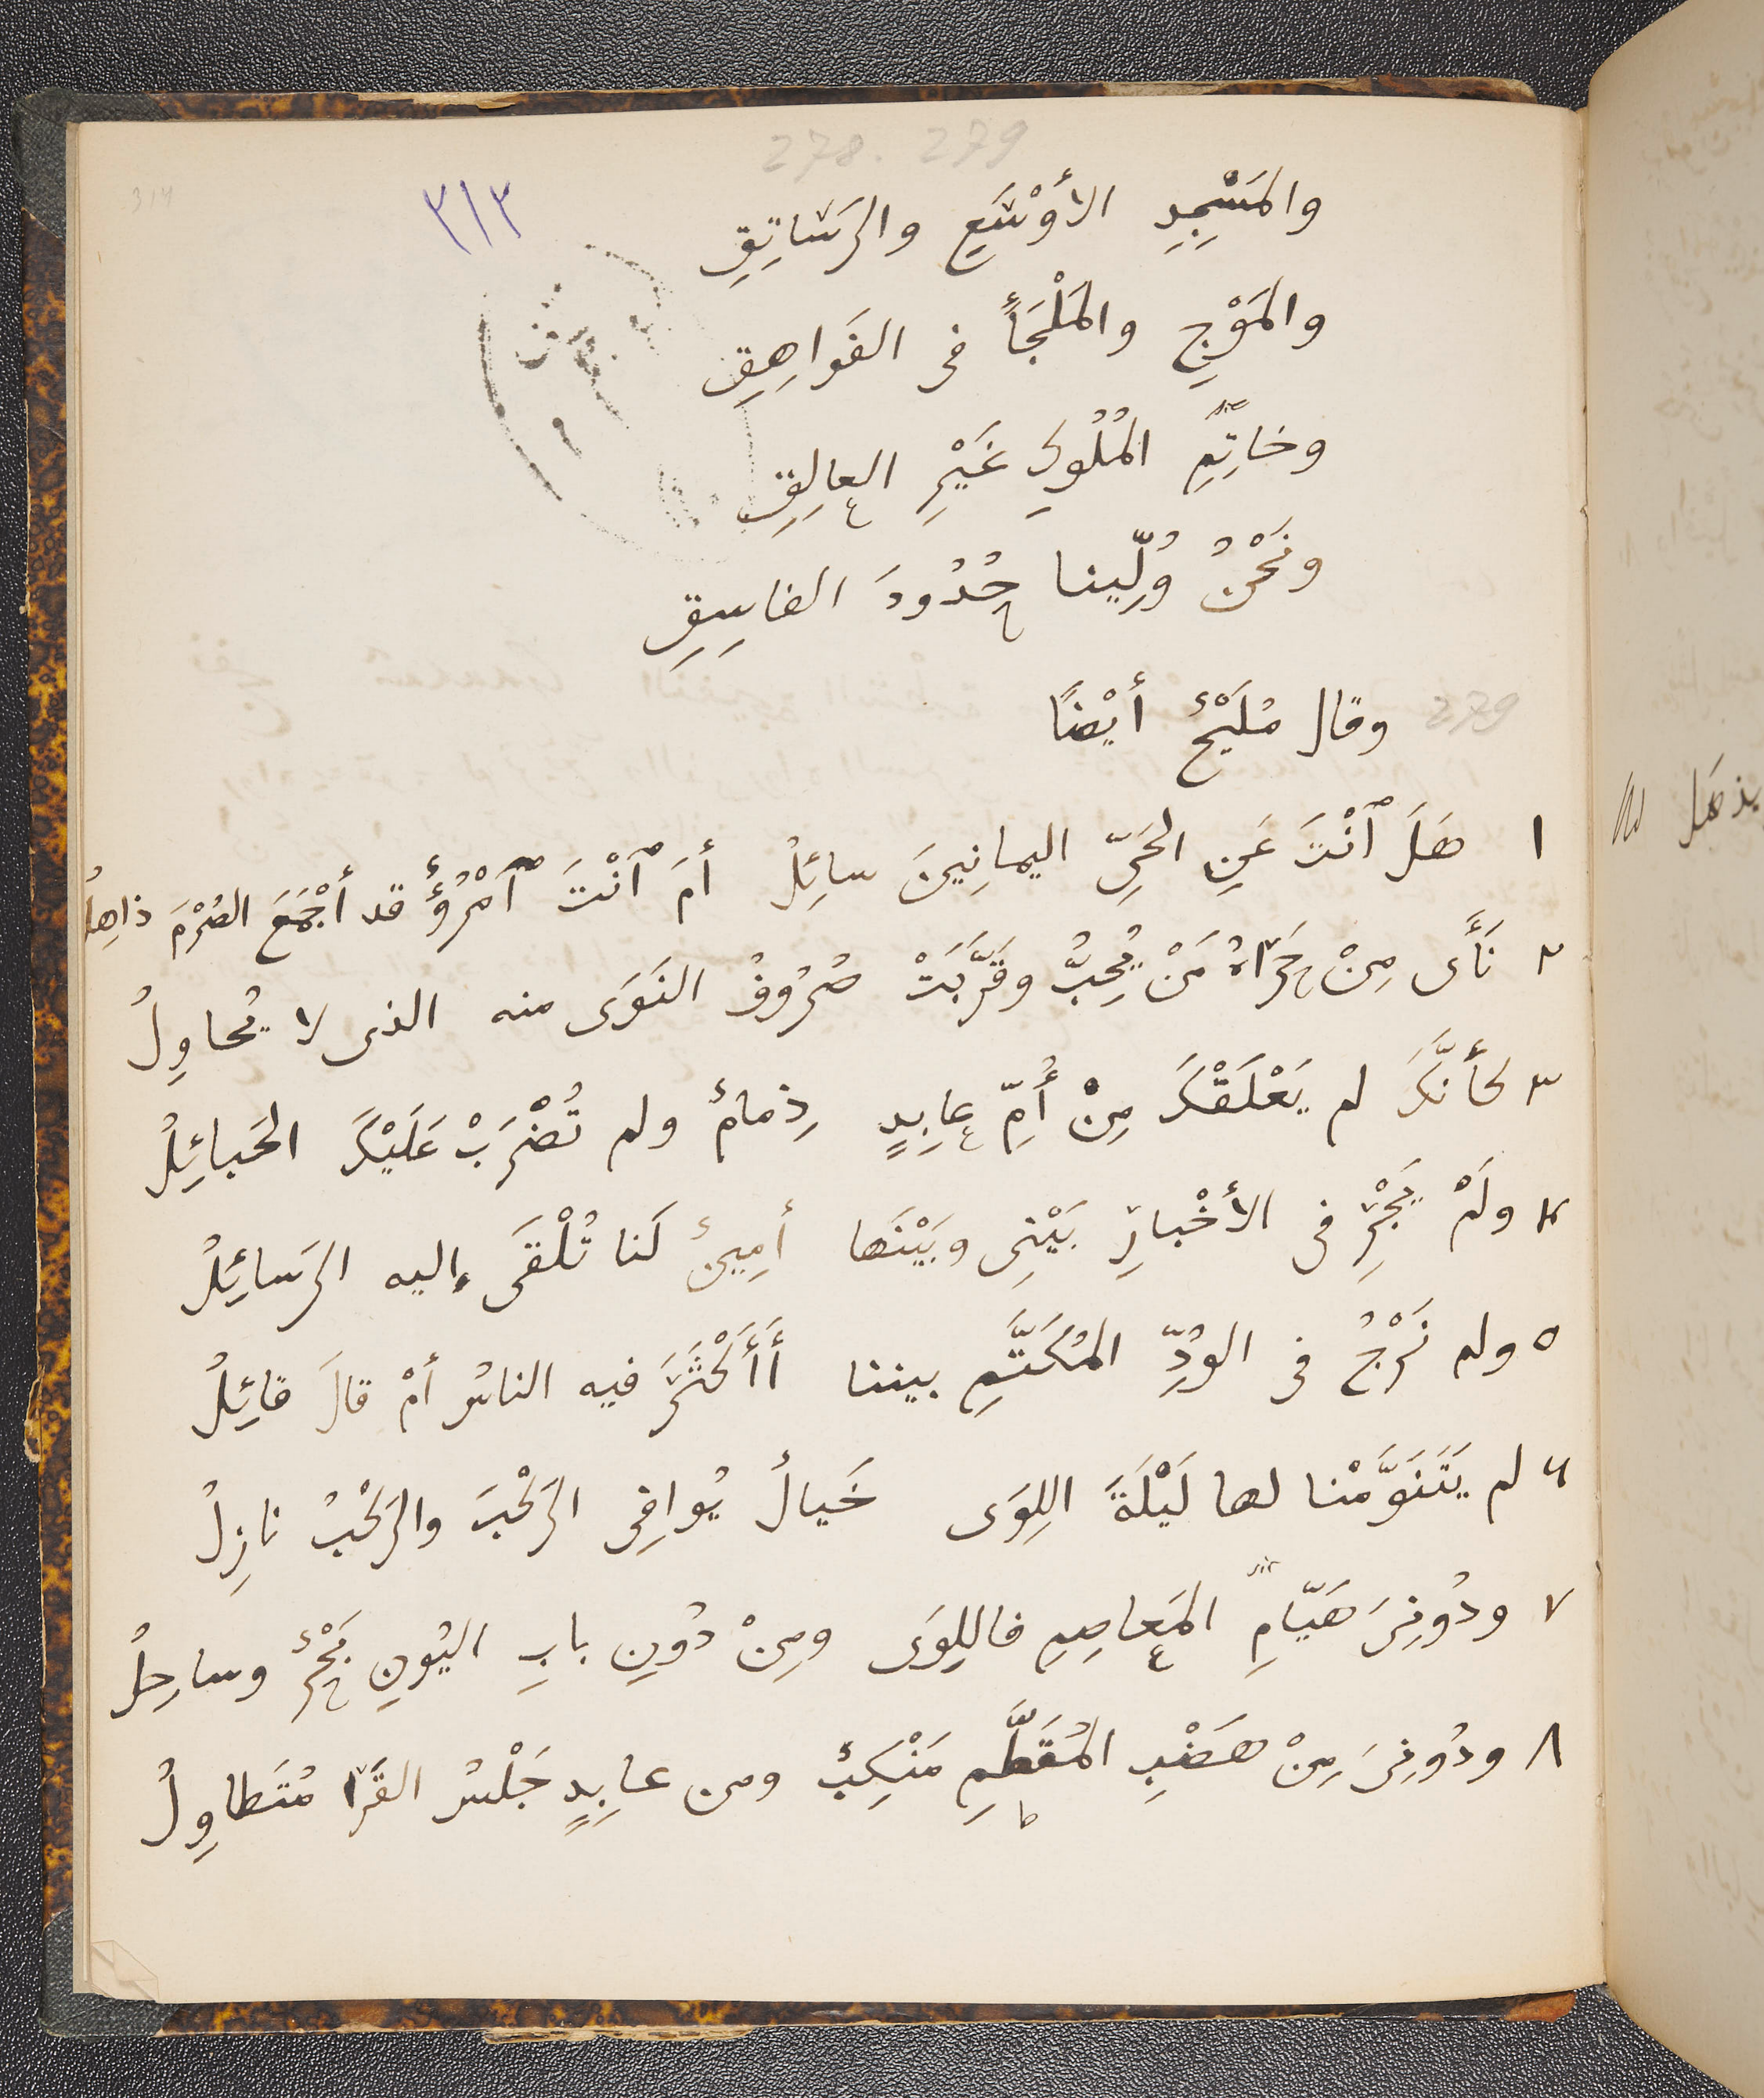 278. 279
٣١٣
314
والمَسْجِدِ الأَوْسَعِ والرَسَاتِقِ
والمَوْجِ والمَلْجَأِ فى الفَوَاهِقِ
وخاتِمِ المُلُوكِ غَيْرِ العالِقِ
ونَحْنُ وُلِّينا حُدُودَ الفاسِقِ
279 وقال مُلَيْحٌ أَيْضًا
١ هَلَ ٱنْتَ عَنِ الحَىِّ اليمانِينَ سائِلُ أَمَ ٱنْتَ ٱمْرُؤٌ قد أَجْمَعَ الصُرْمَ ذاهِلُ
٢ نَأَى مِنْ حَرَاهُ مَنْ يُحِبُّ وقَرَّبَتْ صُرُوفُ النَوَى منه الذى لا يُحاوِلُ
٣ كأَنَّكَ لم يَعْلَقْكَ مِنْ أُمِّ عابِدٍ ذِمامٌ ولم تُضْرَبْ عَلَيْكَ الحَبائِلُ
٤ ولَمْ يَجْرِ فى الأَخْبارِ بَيْنِى وبَيْنَها أَمِينٌ لَنا تُلْقَى إليه الرَسائِلُ
٥ ولم نَرْجُ فى الوُدِّ المُكَتَّمِ بيننا أَأَكْثَرَ فيه الناسُ أمْ قالَ قائِلُ
٦ لم يَتَنَوَّمْنا لها لَيْلَةَ اللِوَى خَيالٌ يُوافِى الرَكْبَ والرَكْبُ نازِلُ
٧ ودُونِىَ هَيّامِ المَعاصِمِ فاللِوَى ومِنْ دُونِ بابِ اليُونِ بَحْرٌ وساحِلُ
٨ ودُونِىَ مِنْ هَضْبِ المُقَطَّمِ مَنْكِبٌ ومن عابِدٍ جَلْسُ القَرَا مُتَطاوِلُ
يذهَل